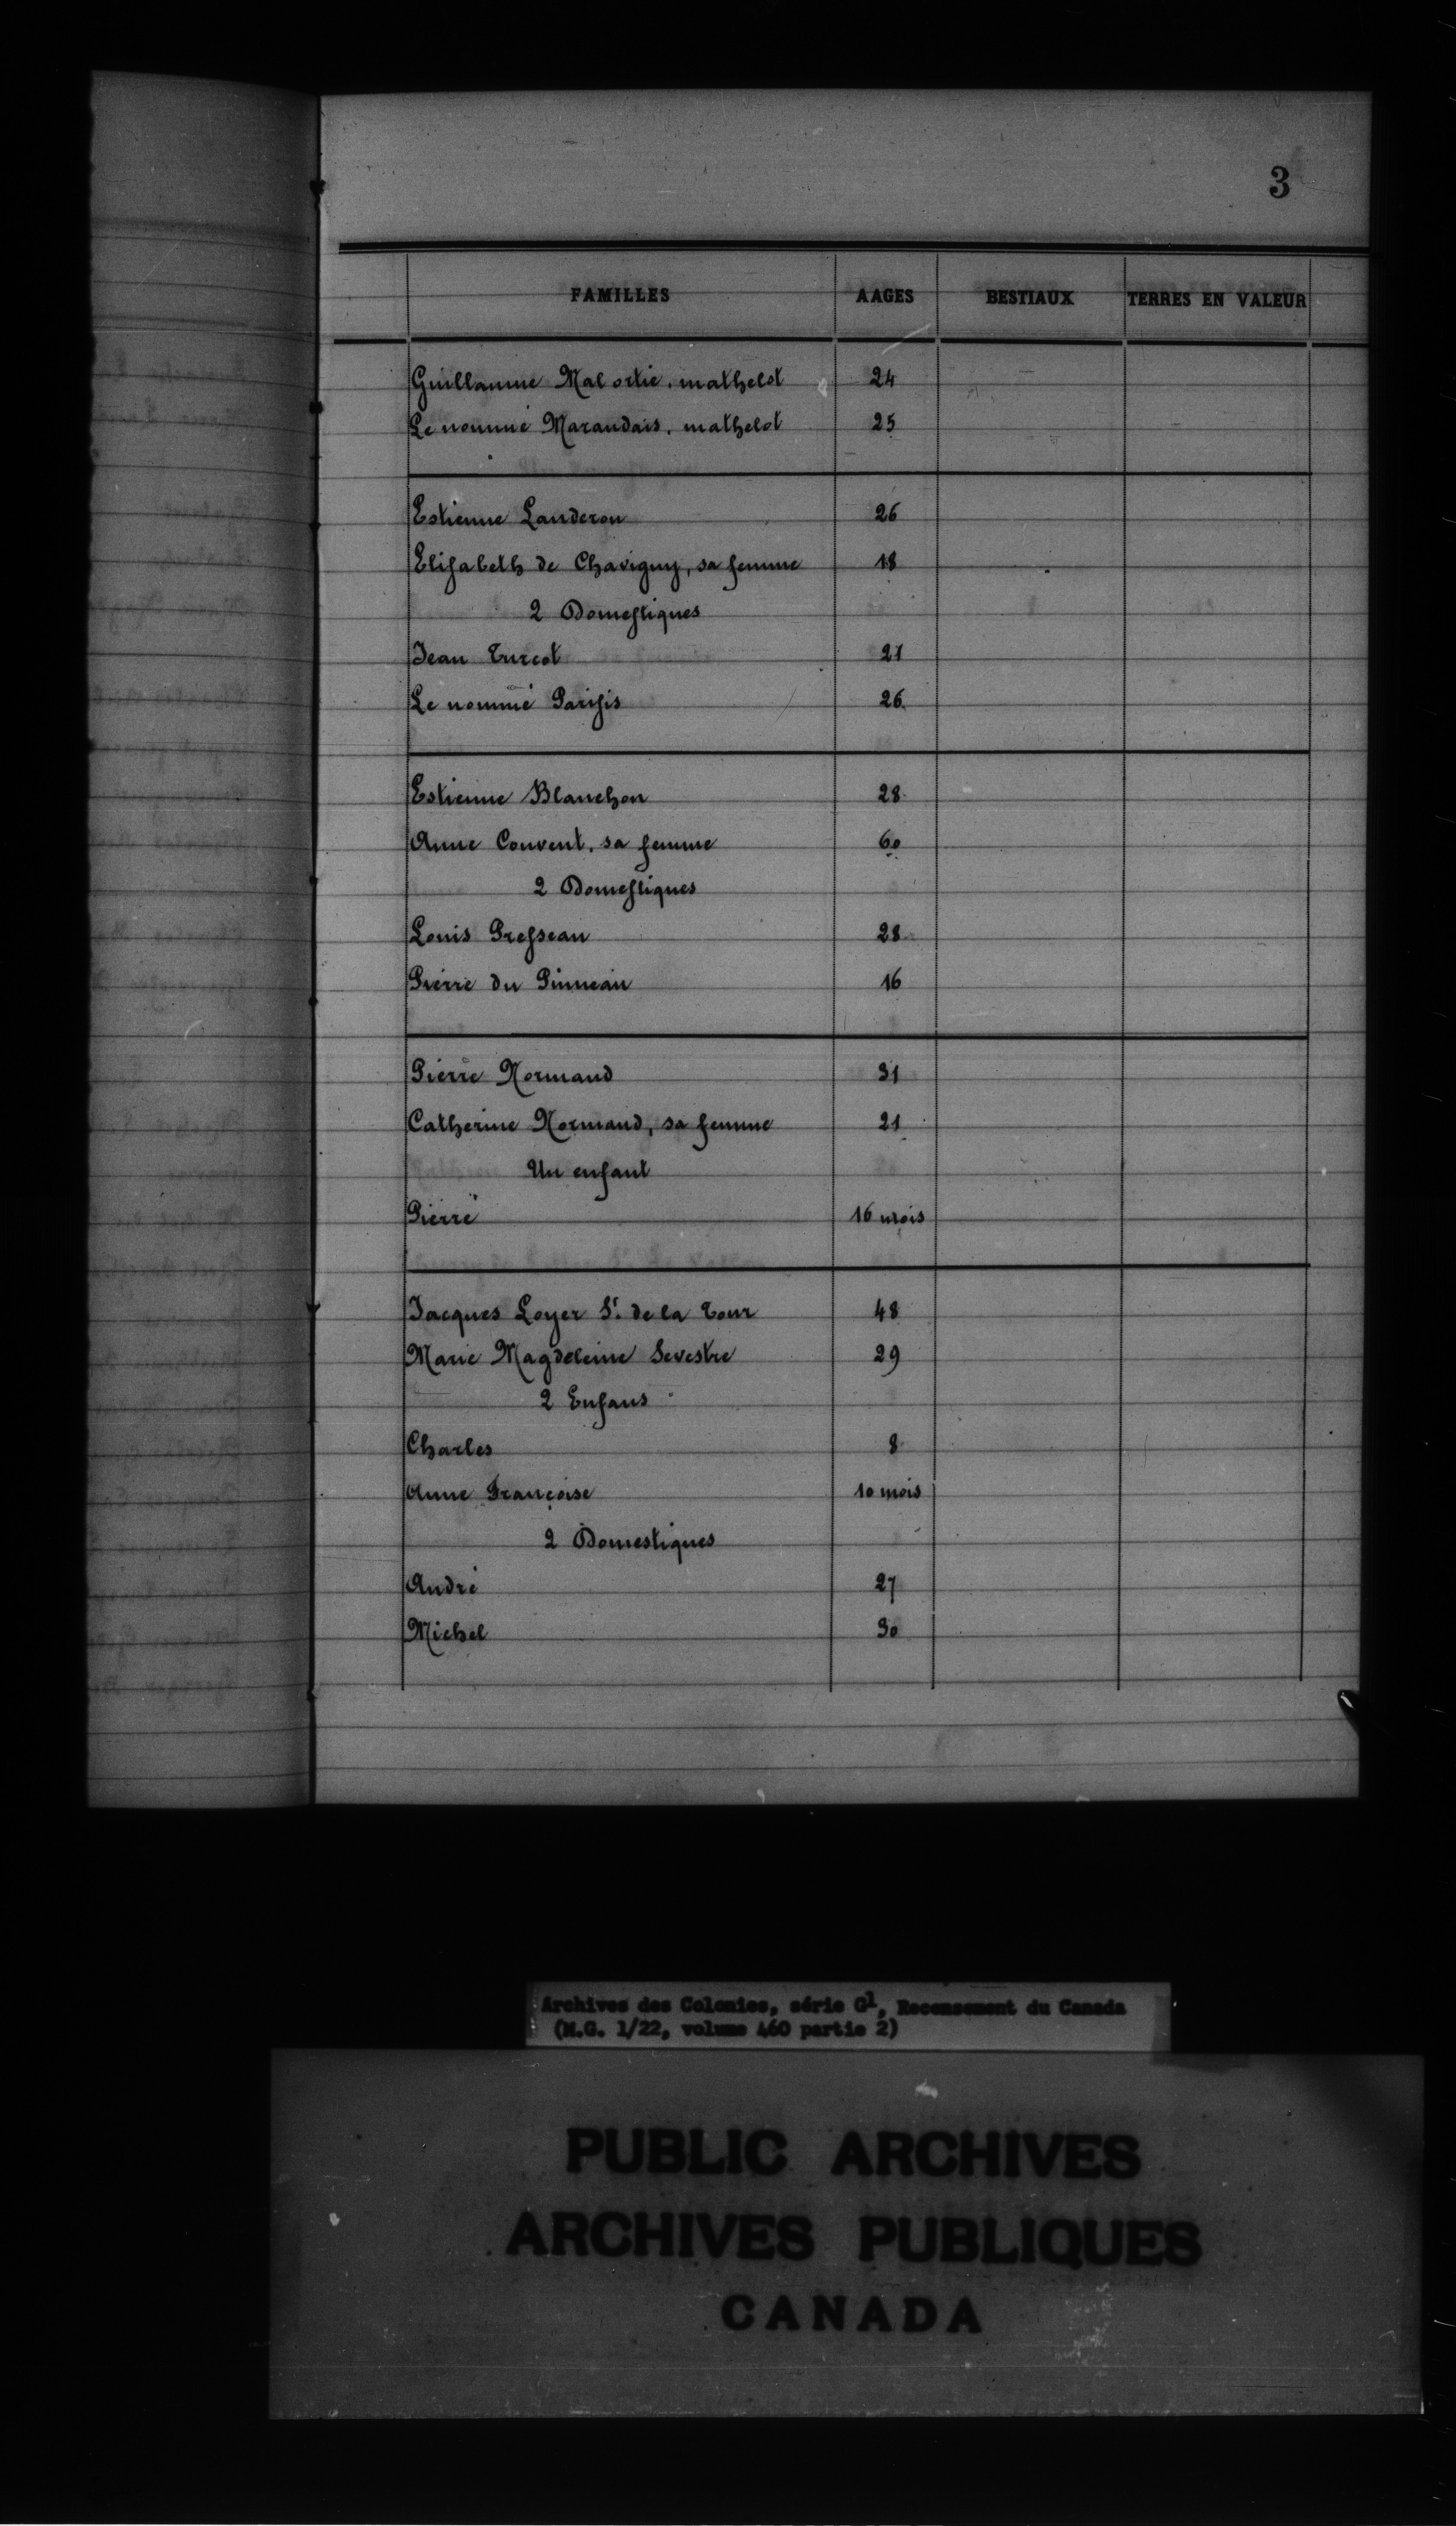 3
FAMILLES AAGES BESTIAUX TERRES EN VALEUR
Guillaume Malortie, mathelot 24
Le nommé Marandais, mathelot 25
Estienne Landeron 26
Elisabeth de Chavigny, sa femme 18
2 Domestiques
Jean Turcot 21
Le nommé Parisis 26
Estienne Blanchon 28
Anne Couvent, sa femme 60
2 Domestiques
Louis Presseau 28
Pierre du Pinneau 16
Pierre Normand 31
Catherine Normand, sa femme 21
Un enfant
Pierre 16 mois
Jacques Loyer Sr. de la Tour 48
Marie Magdeleine Sevestre 29
2 Enfans
Charles 8
Anne Françoise 10 mois
2 Domestiques
André 27
Michel 30
Archives des Colonies, série G1, Recensement du Canada
(M.G. 1/22, volume 460 partie 2)
PUBLIC ARCHIVES
ARCHIVES PUBLIQUES
CANADA